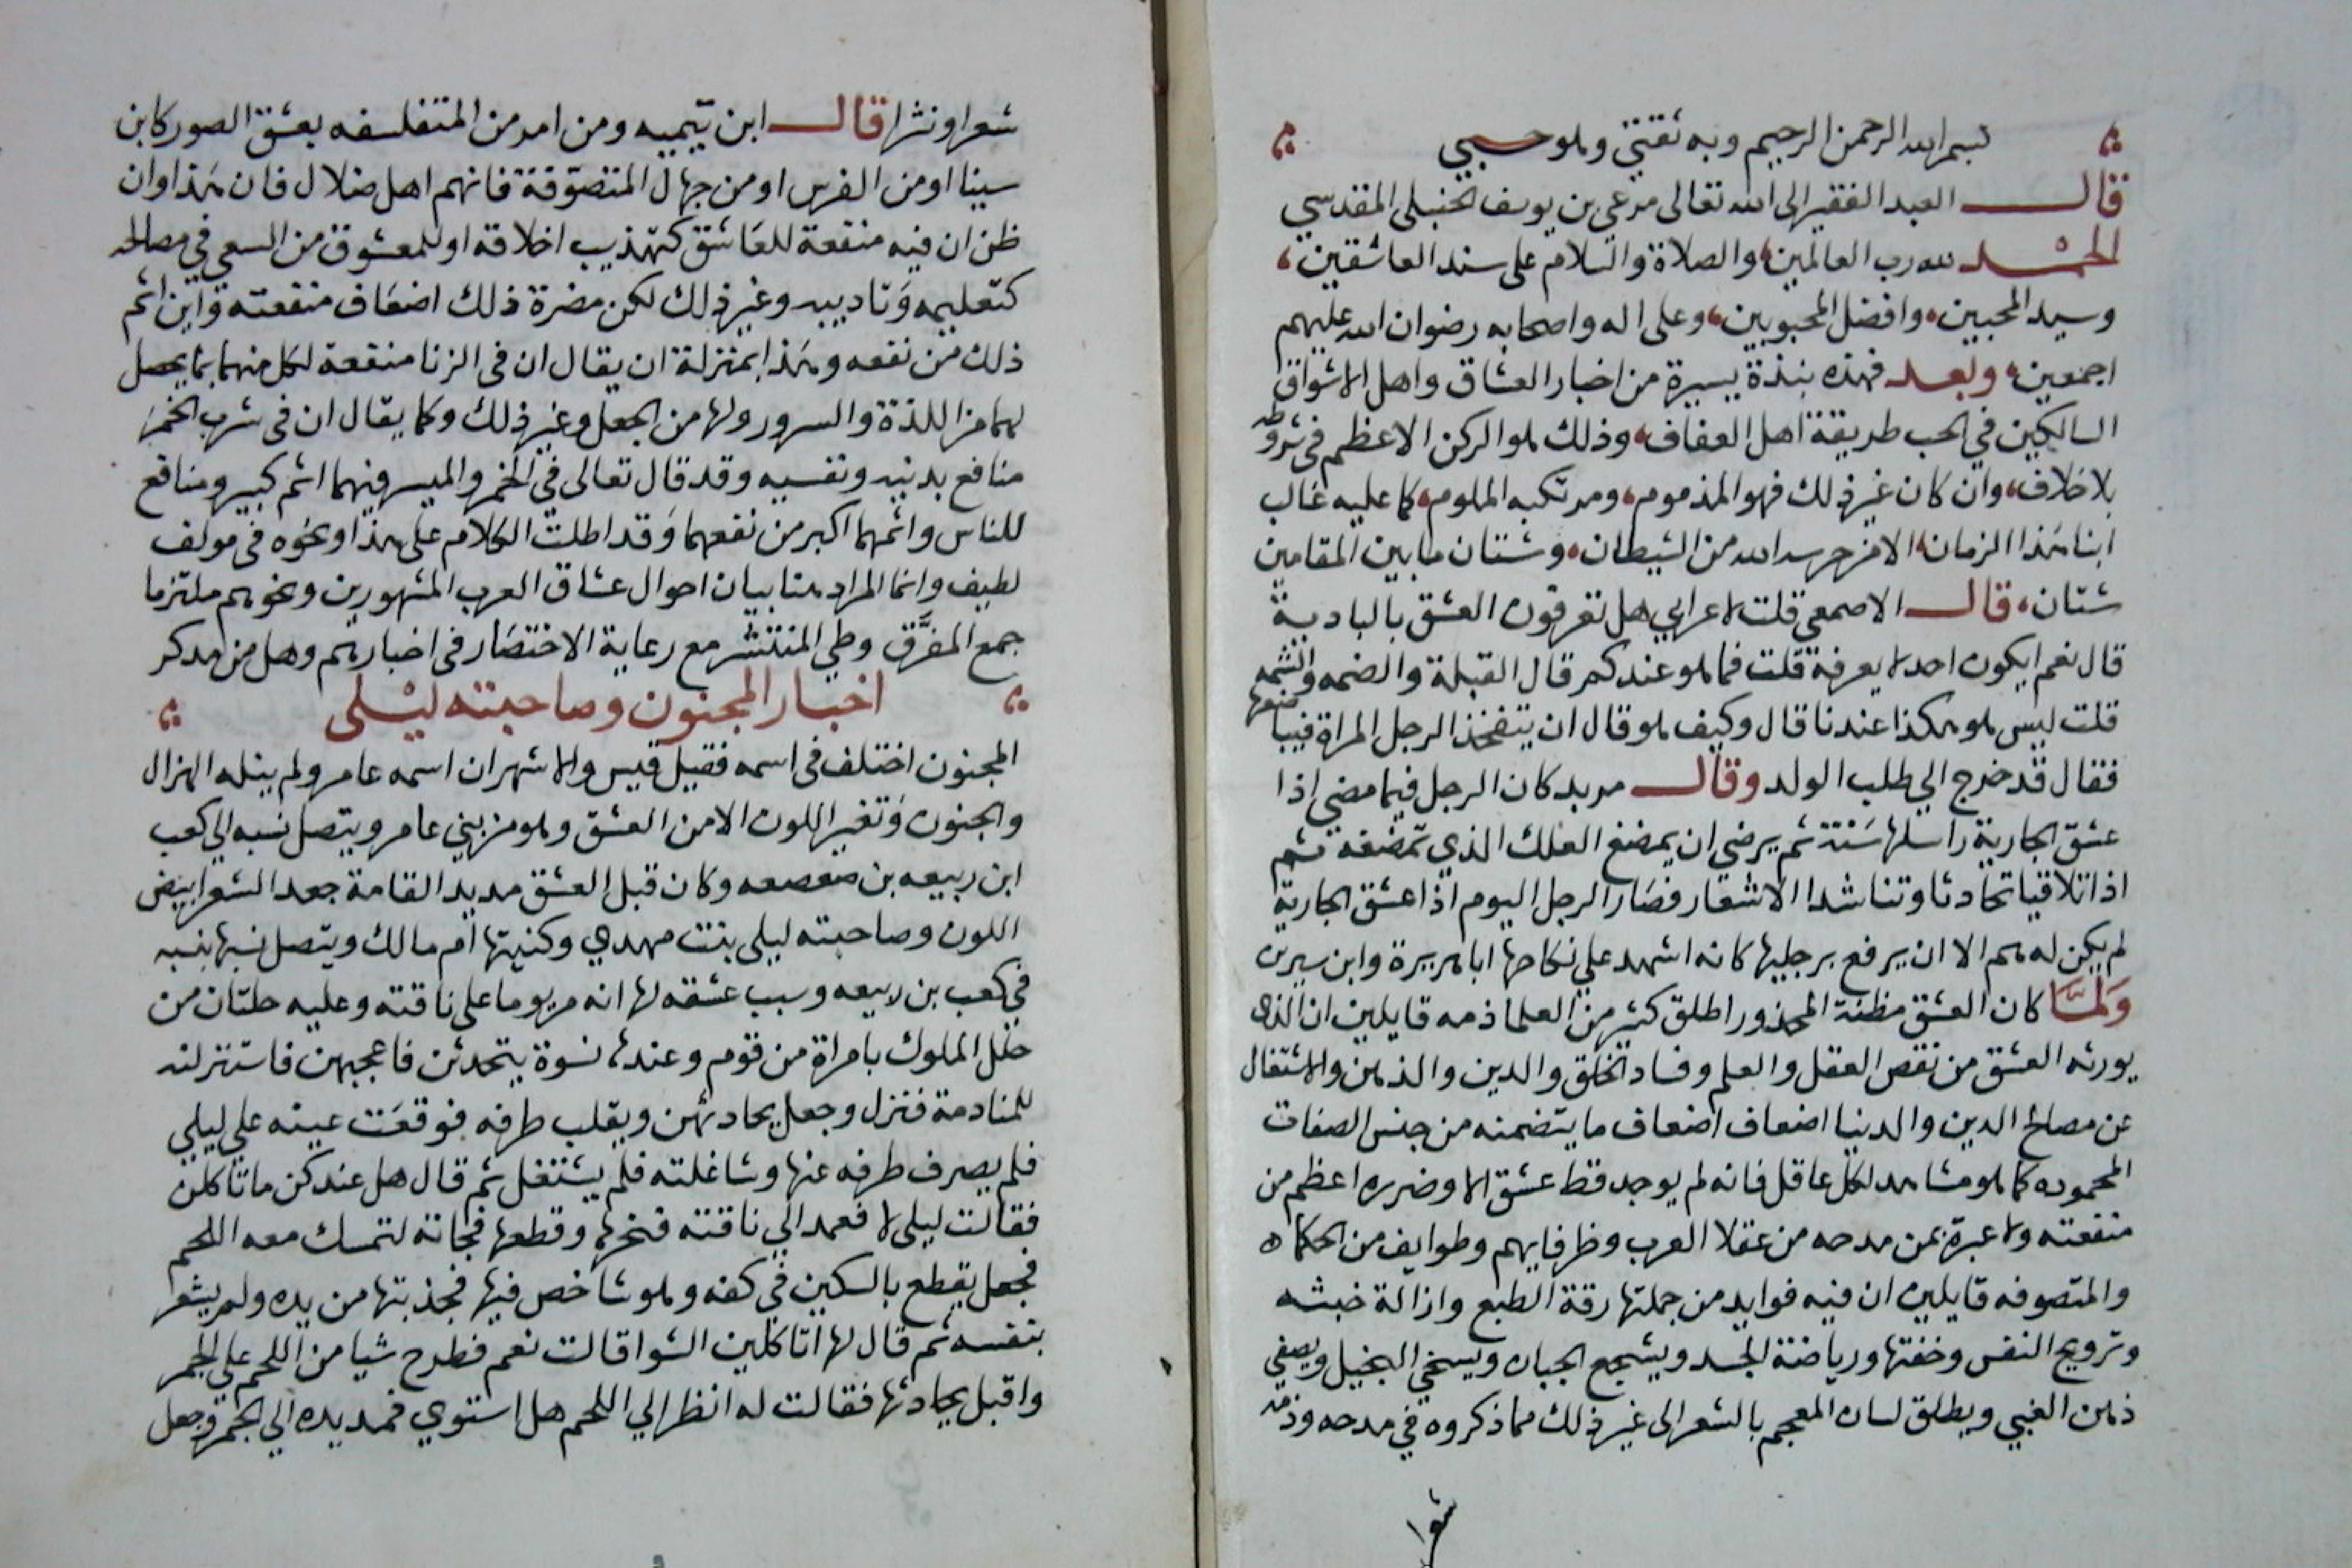 بسم الله الرحمن الرحيم وبه ثقتي وهو حسبي
قال العبد الفقير الى الله تعالى مرعي بن يوسف الحنبلي المقدسي
الحمد لله رب العالمين، والصلاة والسلام على سند العاشقين،
وسيد المحبين، وافضل المحبوبين، وعلى اله واصحابه رضوان الله عليهم
اجمعين، وبعد فهذه نبذة يسيرة من اخبار العشاق واهل الاشواق
السالكين في الحب طريقة اهل العفاف، وذلك هو الركن الاعظم في شروطه
بلا خلاف، وان كان غير ذلك فهو المذموم، ومرتكبه الملوم، كما عليه غالب
ابنا هذا الزمان، الا من حرسه الله من الشيطان، وشتان ما بين المقامين
شتان، قال الاصمعي قلت لاعرابي هل تعرفون العشق بالبادية
قال نعم ايكون احد لا يعرفه قلت فما هو عندكم قال القبلة والضمه والشمه
قلت ليس هو هكذا عندنا قال وكيف هو قال ان يتفخذ الرجل المراة فيباضعها
فقال قد خرج الي طلب الولد وقال مربد كان الرجل فيما مضى اذا
عشق الجارية راسلها سنة ثم يرضى ان يمضغ العلك الذي تمضغه ثم
اذا تلاقيا تحادثا وتناشدا الاشعار فصار الرجل اليوم اذا عشق الجارية
لم يكن له هم الا ان يرفع برجليها كانه اشهد علي نكاحها ابا هريرة وابن سيرين
ولما كان العشق مظنة المحذور اطلق كثير من العلما ذمه قايلين ان الذي
يورثه العشق من نقص العقل والعلم وفساد الخلق والدين والذهن والاشتغال
عن مصالح الدين والدنيا اضعاف اضعاف ما يتضمنه من جنس الصفات
المحموده كما هو مشاهد لكل عاقل فانه لم يوجد قط عشق الا وضرره اعظم من
منفعته ولا عبرة بمن مدحه من عقلا العرب وظرفايهم وطوايف من الحكماه
والمتصوفه قايلين ان فيه فوايد من جملتها رقة الطبع وازالة خبثه
وترويح النفس وخفتها ورياضة الجسد ويشجع الجبان ويسخي البخيل ويصفي
ذهن الغبي ويطلق لسان المعجم بالشعر الى غير ذلك مما ذكروه في مدحه وذمه
شعرا
شعرا ونثرا قال ابن تيميه ومن امر من المتفلسفه بعشق الصور كابن
سينا او من الفرس او من جهال المتصوفة فانهم اهل ضلال فان هذا وان
ظن ان فيه منفعة للعاشق كتهذيب اخلاقه او للمعشوق من السعي في مصالحه
كتعليمه وتاديبه وغير ذلك لكن مضرة ذلك اضعاف منفعته واين اثم
ذلك من نفعه وهذا بمنزلة ان يقال ان في الزنا منفعة لكل منهما بما يحصل
لهما من اللذة والسرور ولها من الجعل وغير ذلك وكما يقال ان في شرب الخمر
منافع بدنيه ونفسيه وقد قال تعالى في الخمر والميسر فيهما اثم كبير ومنافع
للناس واثمهما اكبر من نفعهما وقد اطلت الكلام على هذا ونحوه في مولف
لطيف وانما المراد هنا بيان احوال عشاق العرب المشهورين ونحوهم ملتزما
جمع المفرق وطي المنتشر مع رعاية الاختصار في اخبارهم وهل من مدكر
اخبار المجنون وصاحبته ليلى
المجنون اختلف في اسمه فقيل قيس والاشهر ان اسمه عامر ولم ينله الهزال
والجنون وتغير اللون الا من العشق وهو من بني عامر ويتصل نسبه الي كعب
ابن ربيعه بن صعصعه وكان قبل العشق مديد القامة جعد الشعر ابيض
اللون وصاحبته ليلى بنت مهدي وكنيتها ام مالك ويتصل نسبها بنسبه
في كعب بن ربيعه وسبب عشقه لها انه مر يوما على ناقته وعليه حلتان من
حلل الملوك بامراة من قوم وعندها نسوة يتحدثن فاعجبهن فاستنزلنه
للمنادمة فنزل وجعل يحادثهن ويقلب طرفه فوقعت عينه علي ليلي
فلم يصرف طرفه عنها وشاغلته فلم يشتغل ثم قال هل عندكن ما تاكلن
فقالت ليلى لا فعمد الي ناقته فنحرها وقطعها فجاته لتمسك معه اللحم
فجعل يقطع بالسكين في كفه وهو شاخص فيها فجذبتها من يده ولم يشعر
بنفسه ثم قال لها اتاكلين الشوا قالت نعم فطرح شيا من اللحم على الجمر
واقبل يحادثها فقالت له انظر الي اللحم هل استوي فمد يده الي الجمر وجعل